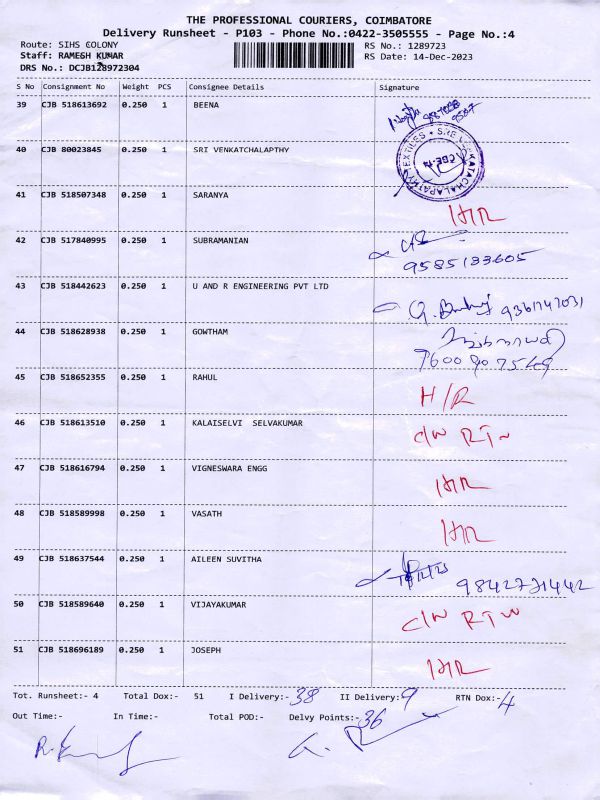 THE PROFESSIONAL COURIERS, COIMBATORE
Delivery Runsheet - P103 - Phone No.:0422-3505555 - Page No.:4
Route: SIHS COLONY RS No.: 1289723
Staff: RAMESH KUMAR RS Date: 14-Dec-2023
DRS No.: DCJB128972304
S No Consignment No Weight PCS Consignee Details Signature
39 CJB 518613692 0.250 1 BEENA
40 CJB 80023845 0.250 1 SRI VENKATCHALAPTHY
41 CJB 518507348 0.250 1 SARANYA H/R
42 CJB 517840995 0.250 1 SUBRAMANIAN
9585133605
43 CJB 518442623 0.250 1 U AND R ENGINEERING PVT LTD
9361747031
44 CJB 518628938 0.250 1 GOWTHAM
7600907549
45 CJB 518652355 0.250 1 RAHUL H/R
46 CJB 518613510 0.250 1 KALAISELVI SELVAKUMAR
47 CJB 518616794 0.250 1 VIGNESWARA ENGG H/R
48 CJB 518589998 0.250 1 VASATH H/R
49 CJB 518637544 0.250 1 AILEEN SUVITHA
50 CJB 518589640 0.250 1 VIJAYAKUMAR C/W RTW
51 CJB 518696189 0.250 1 JOSEPH H/R
Tot. Runsheet:- 4 Total Dox:- 51 I Delivery:- 38 II Delivery:- 9 RTN Dox:- 4
Out Time:- In Time:- Total POD:- Delvy Points:- 36